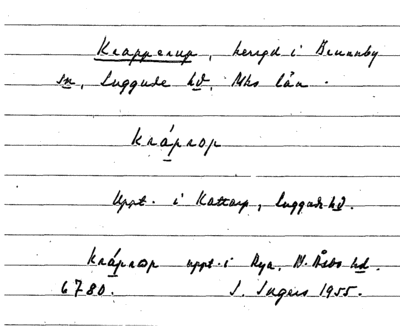 Krapperup, herrgd i Brunnby
sn, Luggude hd, Mhs län.
kráprop
Uppt. i Kattarp, Luggude hd.
kráprop uppt. i Rya, N. Åsbo hd.
6780. J. Ingers 1955.